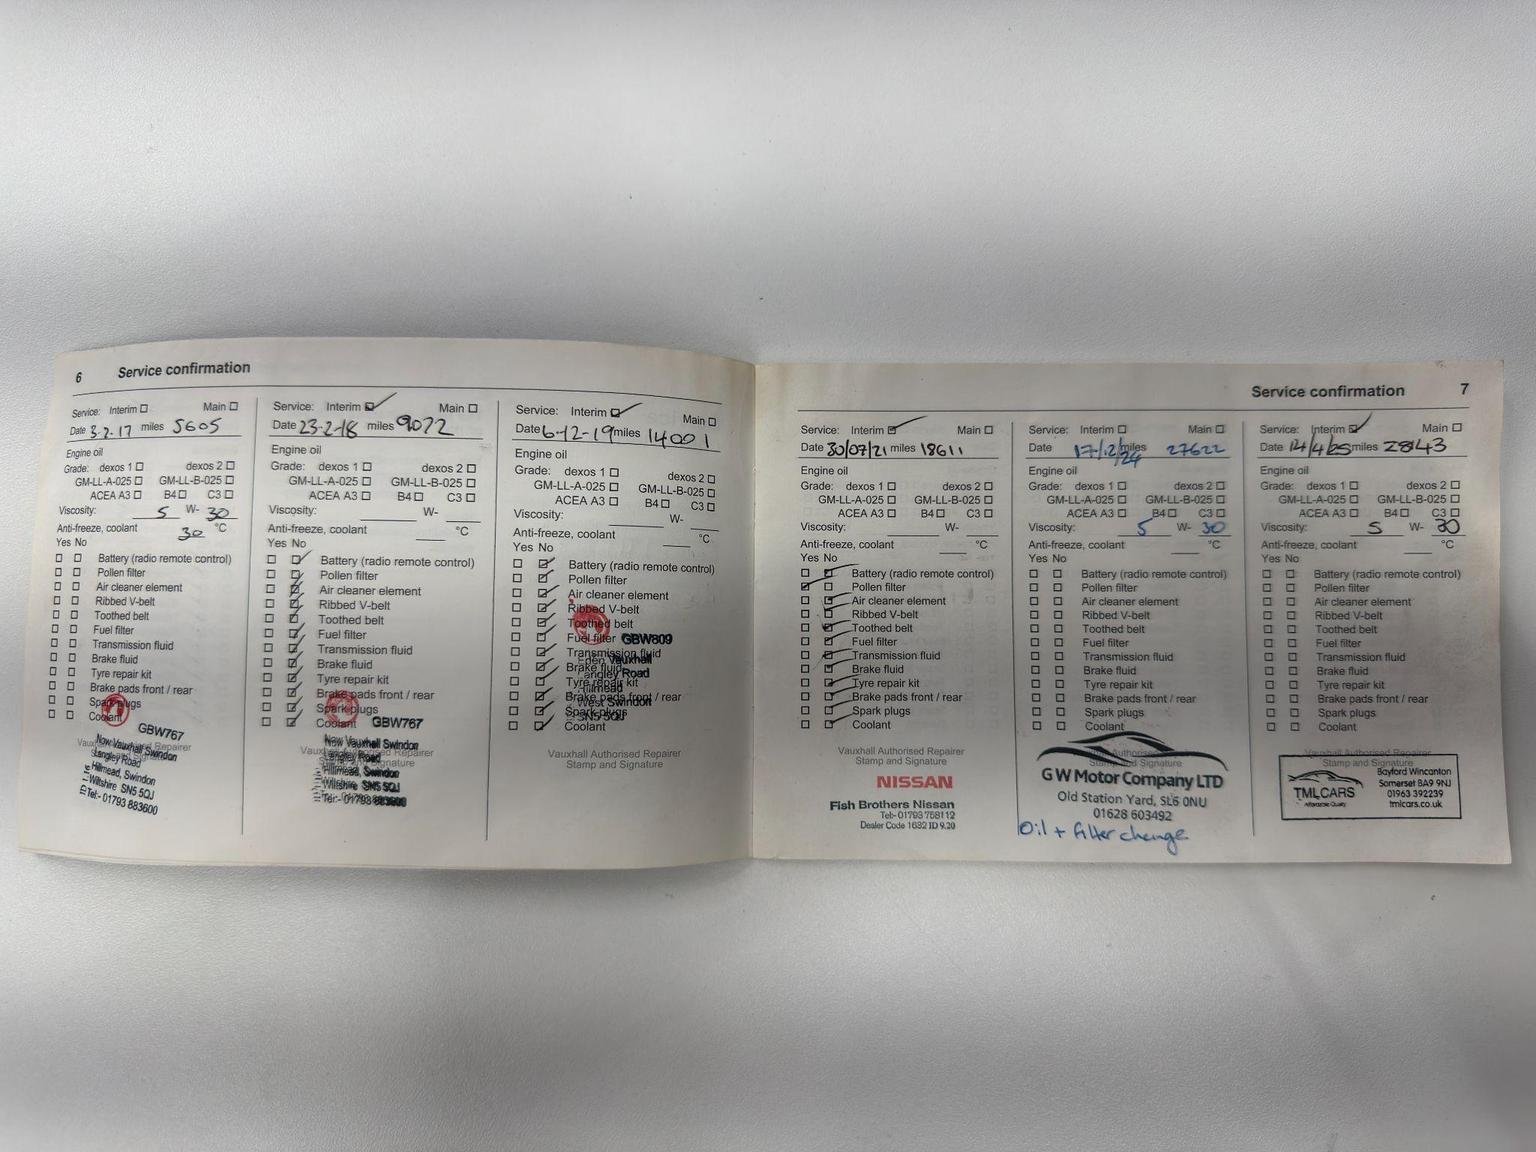 6 Service confirmation
Service: Interim Main
Date 3-2-17 miles 5605
Engine oil
Grade: dexos 1 dexos 2
GM-LL-A-025 GM-LL-B-025
ACEA A3 B4 C3
Viscosity: 5 W- 30
Anti-freeze, coolant 30 °C
Yes No
Battery (radio remote control)
Pollen filter
Air cleaner element
Ribbed V-belt
Toothed belt
Fuel filter
Transmission fluid
Brake fluid
Tyre repair kit
Brake pads front / rear
Spark plugs
Coolant
GBW767
Vauxhall Authorised Repairer
Now Vauxhall Swindon
Langley Road
Hillmead, Swindon
Wiltshire SN5 5QJ
Tel:- 01793 883600
Service: Interim Main
Date 23-2-18 miles 9072
Engine oil
Grade: dexos 1 dexos 2
GM-LL-A-025 GM-LL-B-025
ACEA A3 B4 C3
Viscosity: W-
Anti-freeze, coolant °C
Yes No
Battery (radio remote control)
Pollen filter
Air cleaner element
Ribbed V-belt
Toothed belt
Fuel filter
Transmission fluid
Brake fluid
Tyre repair kit
Brake pads front / rear
Spark plugs
Coolant
GBW767
Vauxhall Authorised Repairer
Stamp and Signature
Now Vauxhall Swindon
Langley Road
Hillmead, Swindon
Wiltshire SN5 5QJ
Tel:- 01793 883600
Service: Interim Main
Date 6-12-19 miles 14001
Engine oil
Grade: dexos 1 dexos 2
GM-LL-A-025 GM-LL-B-025
ACEA A3 B4 C3
Viscosity: W-
Anti-freeze, coolant °C
Yes No
Battery (radio remote control)
Pollen filter
Air cleaner element
Ribbed V-belt
Toothed belt
Fuel filter
Transmission fluid
Brake fluid
Tyre repair kit
Brake pads front / rear
Spark plugs
Coolant
GBW809
Eden Vauxhall
Langley Road
Hillmead
West Swindon
SN5 5QJ
Vauxhall Authorised Repairer
Stamp and Signature
Service confirmation 7
Service: Interim Main
Date 30/07/21 miles 18611
Engine oil
Grade: dexos 1 dexos 2
GM-LL-A-025 GM-LL-B-025
ACEA A3 B4 C3
Viscosity: W-
Anti-freeze, coolant °C
Yes No
Battery (radio remote control)
Pollen filter
Air cleaner element
Ribbed V-belt
Toothed belt
Fuel filter
Transmission fluid
Brake fluid
Tyre repair kit
Brake pads front / rear
Spark plugs
Coolant
Vauxhall Authorised Repairer
Stamp and Signature
NISSAN
Fish Brothers Nissan
Tel:- 01793 758112
Dealer Code 1632 ID 9.20
Service: Interim Main
Date 17/12/24 miles 27622
Engine oil
Grade: dexos 1 dexos 2
GM-LL-A-025 GM-LL-B-025
ACEA A3 B4 C3
Viscosity: 5 W- 30
Anti-freeze, coolant °C
Yes No
Battery (radio remote control)
Pollen filter
Air cleaner element
Ribbed V-belt
Toothed belt
Fuel filter
Transmission fluid
Brake fluid
Tyre repair kit
Brake pads front / rear
Spark plugs
Coolant
Authorised Repairer
Stamp and Signature
G W Motor Company LTD
Old Station Yard, SL6 0NU
01628 603492
Oil + filter change
Service: Interim Main
Date 14/4/25 miles 28143
Engine oil
Grade: dexos 1 dexos 2
GM-LL-A-025 GM-LL-B-025
ACEA A3 B4 C3
Viscosity: 5 W- 30
Anti-freeze, coolant °C
Yes No
Battery (radio remote control)
Pollen filter
Air cleaner element
Ribbed V-belt
Toothed belt
Fuel filter
Transmission fluid
Brake fluid
Tyre repair kit
Brake pads front / rear
Spark plugs
Coolant
Vauxhall Authorised Repairer
Stamp and Signature
TML CARS
Affordable Quality
Bayford Wincanton
Somerset BA9 9NJ
01963 392239
tmlcars.co.uk